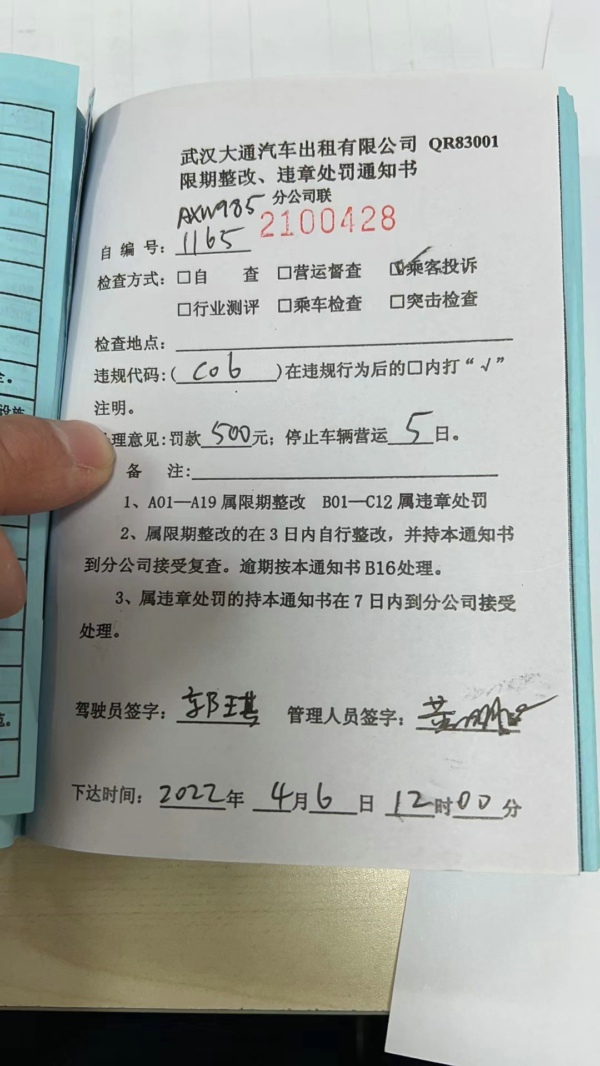 武汉大通汽车出租有限公司 QR83001
限期整改、违章处罚通知书
分公司联
AXW985
2100428
自 编 号: 1165
检查方式: □自 查 □营运督查 ☑乘客投诉
□行业测评 □乘车检查 □突击检查
检查地点:
违规代码:( C06 )在违规行为后的□内打“√”
注明。
理意见:罚款 500 元; 停止车辆营运 5 日。
备 注:
1、A01—A19 属限期整改 B01—C12 属违章处罚
2、属限期整改的在 3 日内自行整改，并持本通知书
到分公司接受复查。逾期按本通知书 B16 处理。
3、属违章处罚的持本通知书在 7 日内到分公司接受
处理。
驾驶员签字: 郭琪 管理人员签字:
下达时间: 2022 年 4 月 6 日 12 时 00 分